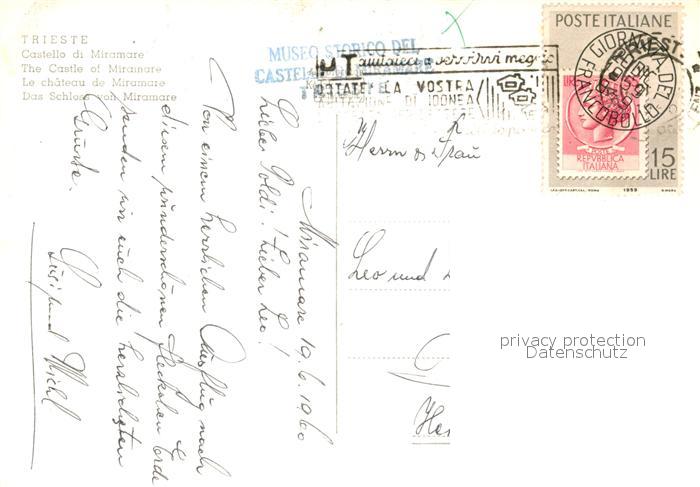 TRIESTE
Castello di Miramare
The Castle of Miramare
Le château de Miramare
Das Schloss von Miramare
MUSEO STORICO DEL
CASTELLO DI MIRAMARE
TRIESTE
PT aiutateci a servirvi meglio
DOTATE LA VOSTRA
ABITAZIONE DI IDONEA
POSTE ITALIANE
GIORNATA DEL FRANCOBOLLO
TRIEST
LIRE
POSTE
REPVBBLICA
ITALIANA
15
LIRE
1959
Miramare 19.6.1960
Lieber Poldi! Lieber Leo!
Von einem herrlichen Ausflug nach
diesem wunderschönen Fleckchen Erde
senden wir euch die herzlichsten
Grüsse.
Michl
Herrn & Frau
Leo und
privacy protection
Datenschutz